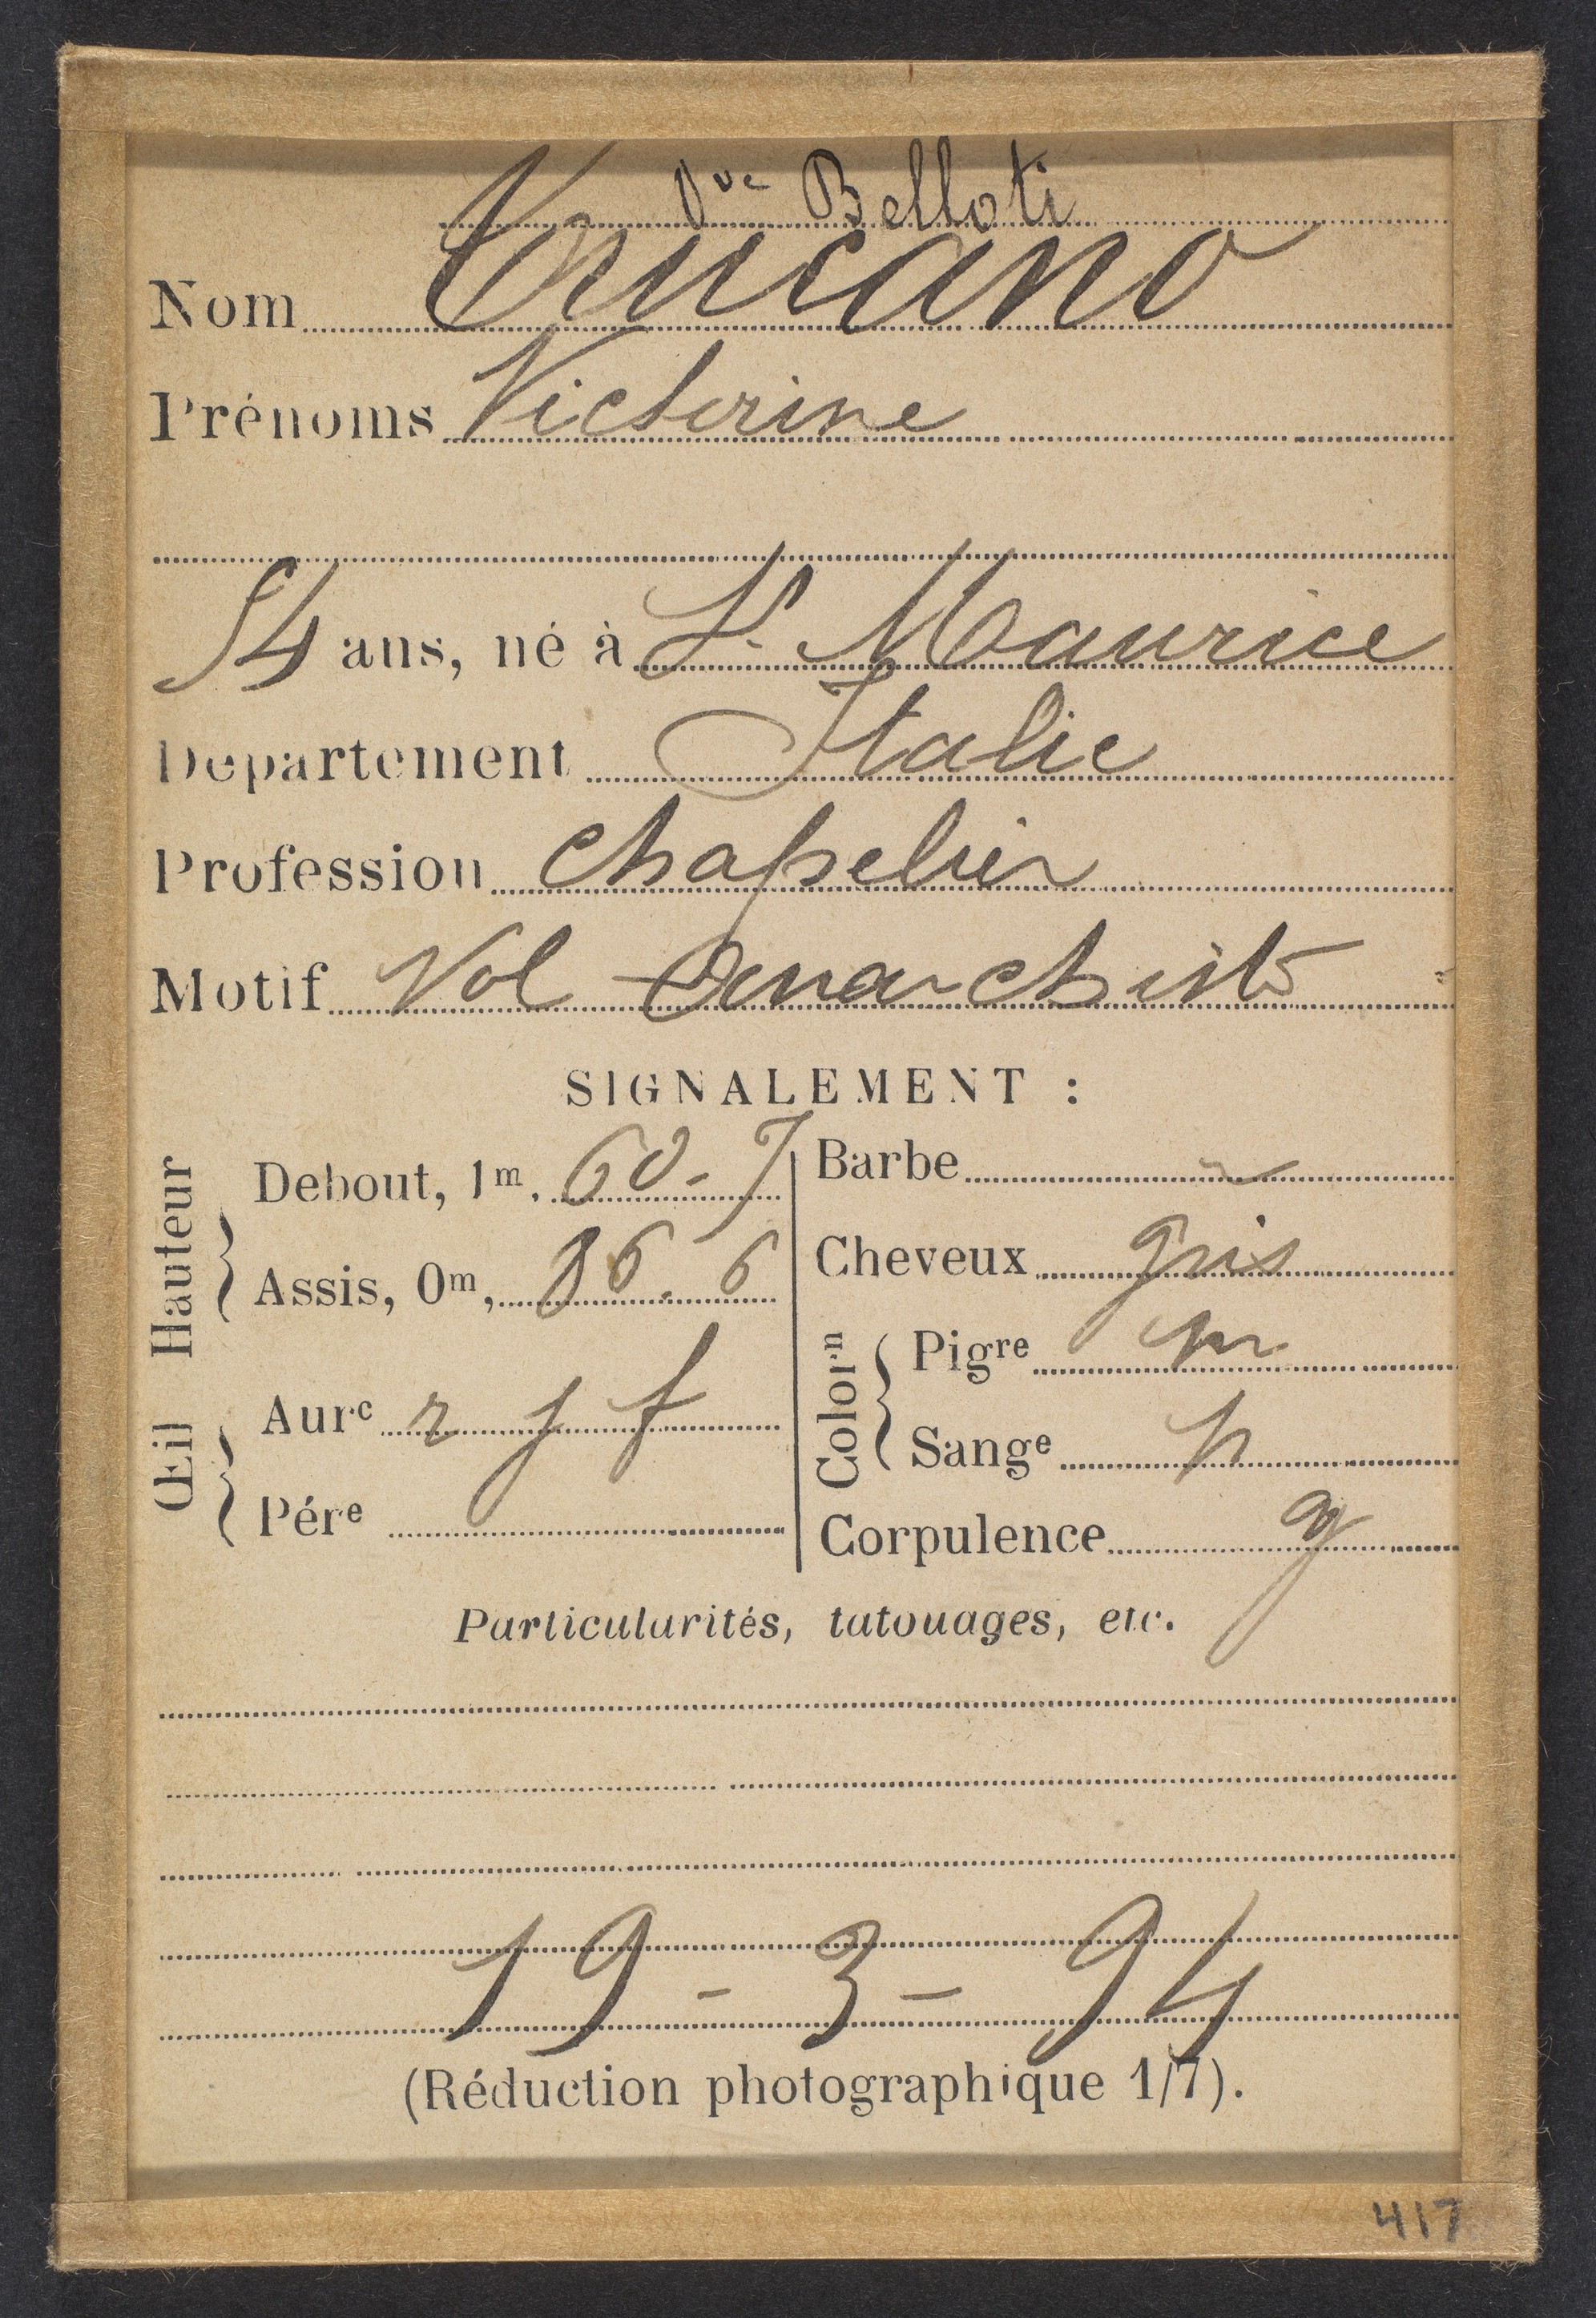 Vve Belloti
Nom Trucano
Prénoms Victorine
54 ans, né à St Maurice
Département Italie
Profession Chapelier
Motif Vol Anarchiste
SIGNALEMENT :
Hauteur
Debout, 1m, 60-7
Assis, 0m, 86.6
Œil
Aure r j f
Pére
Barbe
Cheveux gris
Colorn
Pigre m
Sange
Corpulence g
Particularités, tatouages, etc.
19-3-94
(Réduction photographique 1/7).
417